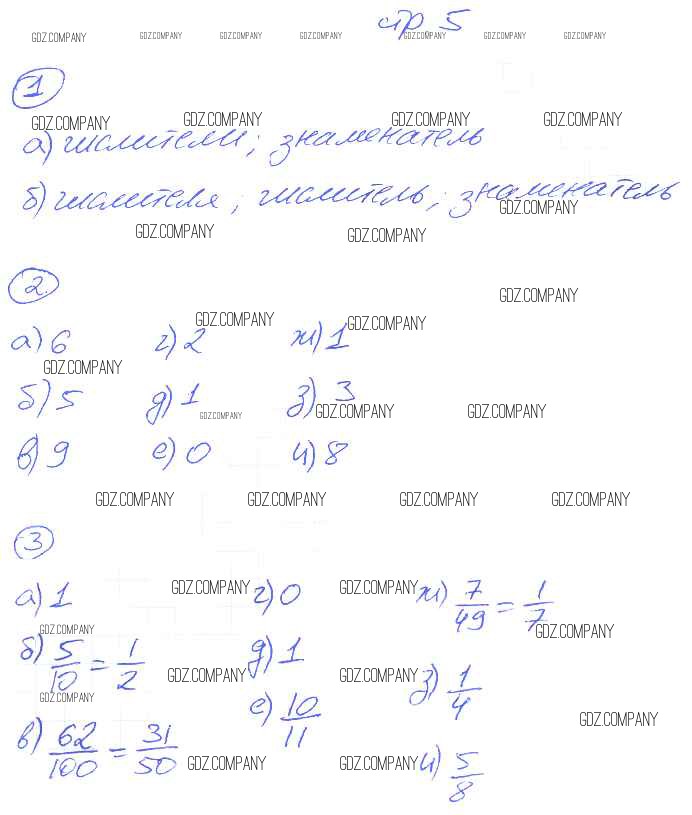 стр 5
GDZ.COMPANY GDZ.COMPANY GDZ.COMPANY GDZ.COMPANY GDZ.COMPANY GDZ.COMPANY GDZ.COMPANY
1
GDZ.COMPANY GDZ.COMPANY GDZ.COMPANY GDZ.COMPANY
а) числители; знаменатель
б) числителя; числитель; знаменатель
GDZ.COMPANY
GDZ.COMPANY GDZ.COMPANY
2
GDZ.COMPANY
GDZ.COMPANY GDZ.COMPANY
а) 6 г) 2 ж) 1
GDZ.COMPANY
б) 5 д) 1 з) 3
GDZ.COMPANY GDZ.COMPANY GDZ.COMPANY
в) 9 е) 0 и) 8
GDZ.COMPANY GDZ.COMPANY GDZ.COMPANY GDZ.COMPANY
3
GDZ.COMPANY GDZ.COMPANY
а) 1 г) 0 ж) 7/49 = 1/7
GDZ.COMPANY GDZ.COMPANY
б) 5/10 = 1/2 д) 1 з) 1/4
GDZ.COMPANY GDZ.COMPANY
GDZ.COMPANY GDZ.COMPANY
в) 62/100 = 31/50 е) 10/11 и) 5/8
GDZ.COMPANY GDZ.COMPANY